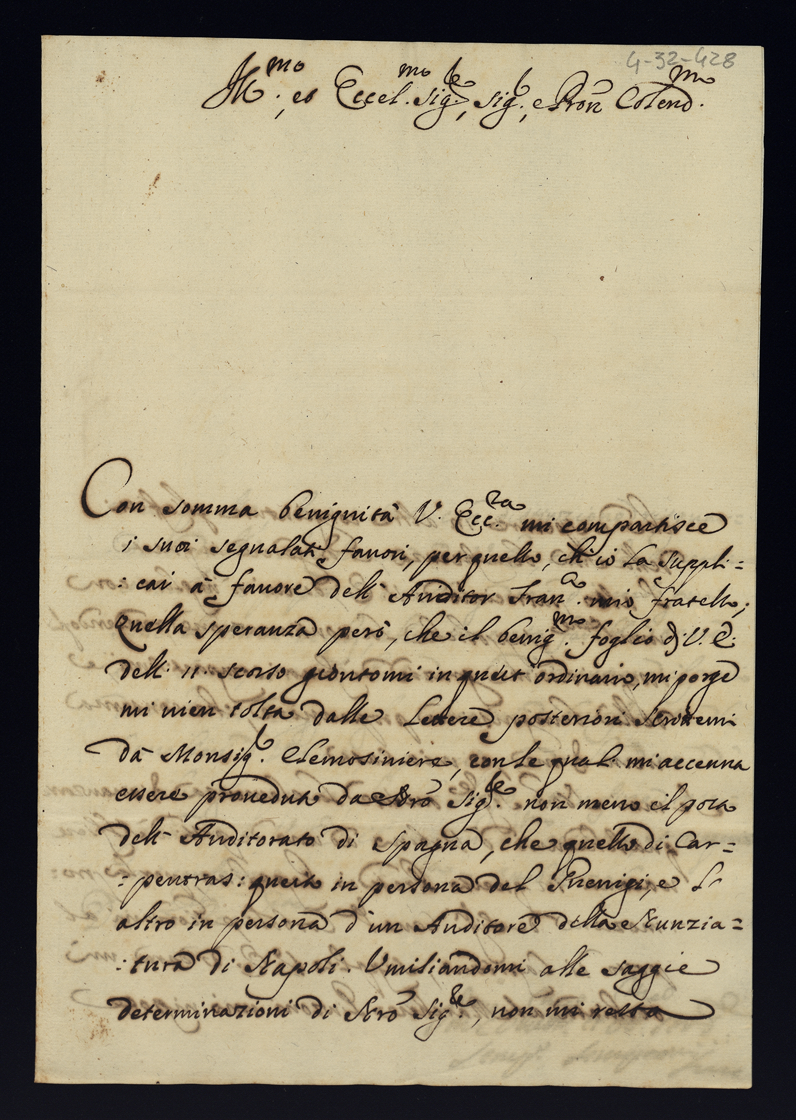 4-32-428
Ill.mo, et Eccel.mo Sig.re, Sig.r, e Pron Colend.mo
Con somma benignità V. Ecc.za mi compartisce
i suoi segnalati favori, per quello, ch'io La suppli=
:cai à favore dell'Auditor Fran.co mio fratello;
Quella speranza però, che il benig.mo foglio di V. E.
dell'11. scorso giontomi in quest'ordinario, mi porge
mi vien tolta dalle Lettere posteriori scrittemi
da Monsig.r Elemosiniere, con le quali mi accenna
essere proveduta da Nrō Sig.re non meno il posto
dell'Auditorato di Spagna, che quello di Car=
:pentras: questo in persona del, e L'
altro in persona d'un Auditore della Nunzia=
:tura di Napoli. Umiliandomi alle saggie
determinazioni di Nrō Sig.re, non mi resta